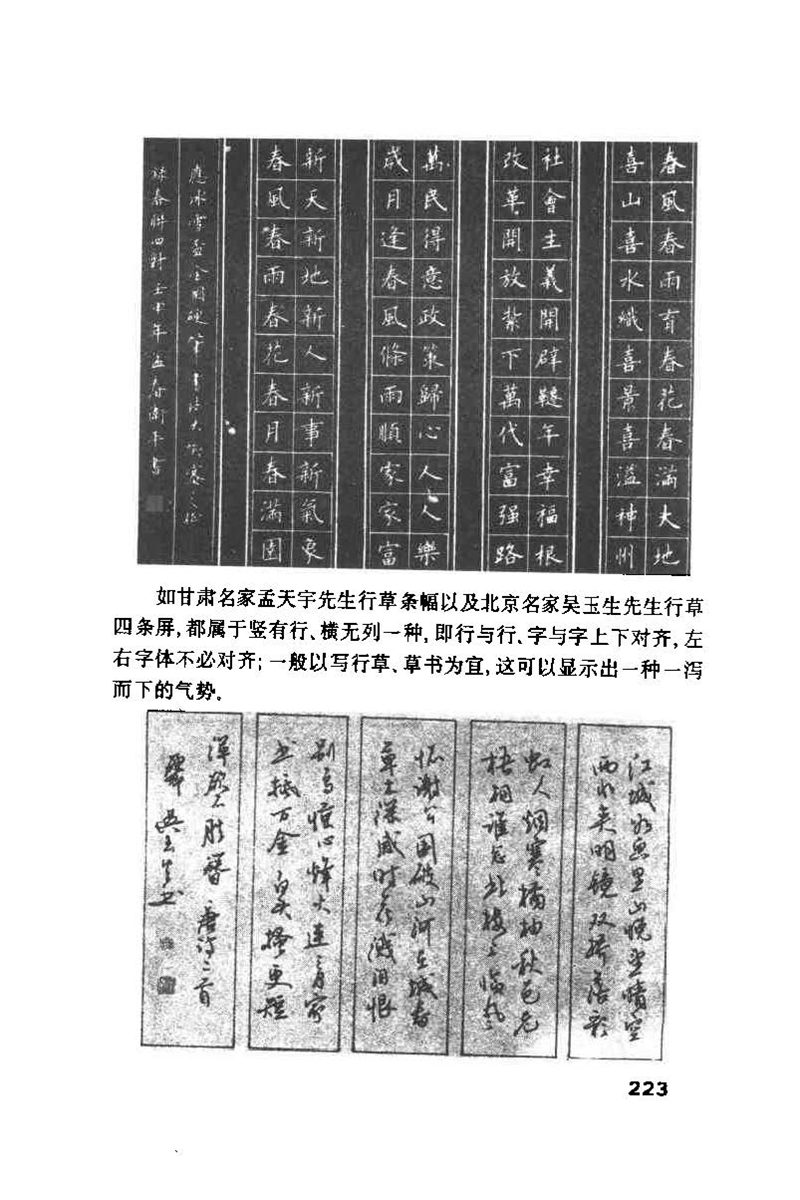 春風春雨育春花春滿大地
喜山喜水織喜景喜溢神州
社會主義開辟韆年幸福根
改革開放紮下萬代富强路
萬民得意政策歸心人人樂
歲月逢春風條雨順家家富
新天新地新人新事新氣象
春風春雨春花春月春滿園
應冰雪盃全國硬筆書法大
春聯四對壬申年立春衛平書
如甘肃名家孟天宇先生行草条幅以及北京名家吴玉生先生行草
四条屏,都属于竖有行、横无列一种,即行与行、字与字上下对齐,左
右字体不必对齐;一般以写行草、草书为宜,这可以显示出一种一泻
而下的气势。
江城如画里山晓望晴空
两水夹明镜双桥落彩
虹人烟寒橘柚秋色老
梧桐谁念北楼上临风
怀谢公国破山河在城春
草木深感时花溅泪恨
别鸟惊心烽火连三月家
书抵万金白头搔更短
浑欲不胜簪 唐诗二首
吴玉生书
223